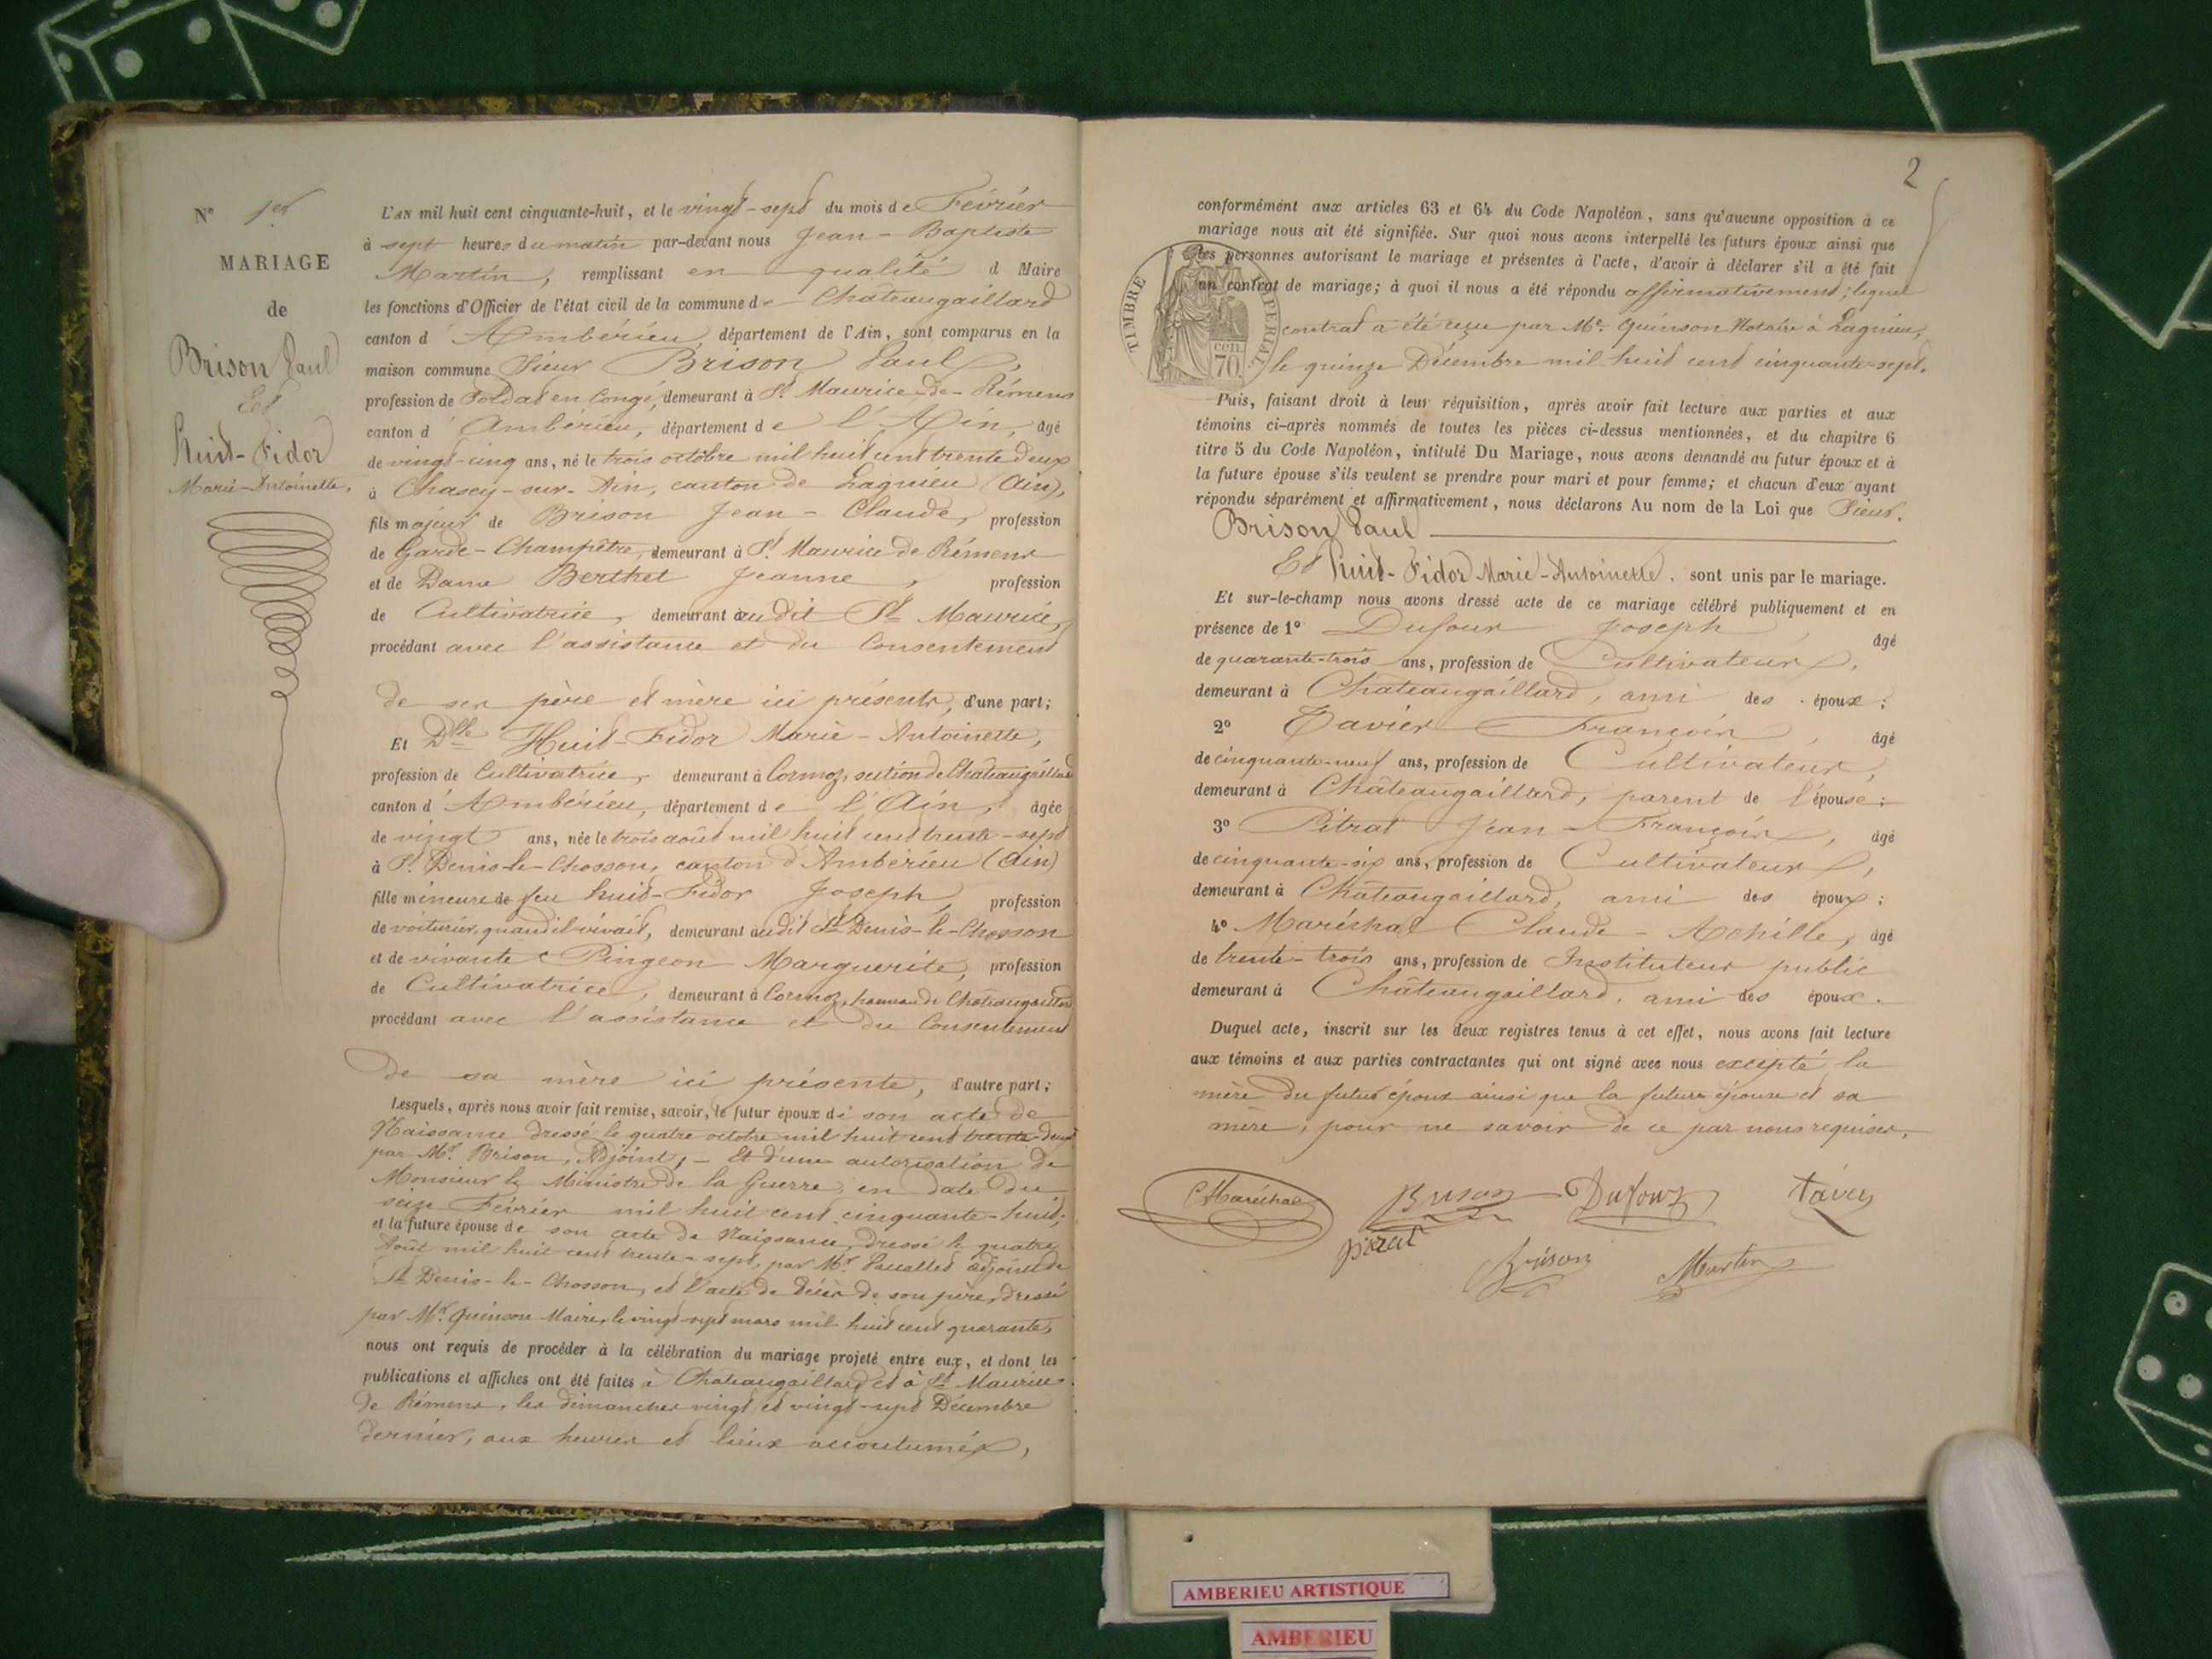 N° 1er
MARIAGE
de
Brison Paul
Et
Huit-Fidor
Marie-Antoinette,
L'AN mil huit cent cinquante-huit, et le vingt-sept du mois de Février
à sept heures du matin par-devant nous Jean-Baptiste
Martin, remplissant en qualité d Maire
les fonctions d'Officier de l'état civil de la commune de Châteaugaillard
canton d'Ambérieu, département de l'Ain, sont comparus en la
maison commune Sieur Brison Paul,
profession de Soldat en Congé, demeurant à St Maurice-de-Rémens
canton d'Ambérieu, département de l'Ain, âgé
de vingt-cinq ans, né le trois octobre mil huit cent trente deux
à Chasey-sur-Ain, canton de Lagnieu (Ain),
fils majeur de Brison Jean-Claude, profession
de Garde-Champêtre, demeurant à St Maurice de Rémens
et de Dame Berthet Jeanne, profession
de Cultivatrice, demeurant au dit St Maurice,
procédant avec l'assistance et du Consentement
de ses père et mère ici présents, d'une part;
Et Dlle Huit-Fidor Marie-Antoinette,
profession de Cultivatrice, demeurant à Cormoz, section de Châteaugaillard
canton d'Ambérieu, département de l'Ain, âgée
de vingt ans, née le trois août mil huit cent trente-sept
à St Denis-le-Chosson, canton d'Ambérieu (Ain)
fille mineure de feu huit-Fidor Joseph, profession
de voiturier, quand il vivait, demeurant audit St Denis-le-Chosson
et de vivante Pingeon Marguerite, profession
de Cultivatrice, demeurant à Cormoz, hameau de Châteaugaillard
procédant avec l'assistance et du Consentement
de sa mère ici présente, d'autre part;
Lesquels, après nous avoir fait remise, savoir, le futur époux de son acte de
Naissance dressé le quatre octobre mil huit cent trente-deux
par Mr. Brison, Adjoint; - Et d'une autorisation de
Monsieur le Ministre de la Guerre, en date du
seize Février mil huit cent cinquante-huit;
et la future épouse de son acte de Naissance, dressé le quatre
Août mil huit cent trente-sept, par Mr adjoint de
St Denis-le-Chosson, et l'acte de décès de son père, dressé
par Mr. Quinson Maire, le vingt-sept mars mil huit cent quarante,
nous ont requis de procéder à la célébration du mariage projeté entre eux, et dont les
publications et affiches ont été faites à Châteaugaillard et à St Maurice
de Rémens, les dimanches vingt et vingt-sept Décembre
dernier, aux heures et lieux accoutumés,
2
conformément aux articles 63 et 64 du Code Napoléon, sans qu'aucune opposition à ce
mariage nous ait été signifiée. Sur quoi nous avons interpellé les futurs époux ainsi que
les personnes autorisant le mariage et présentes à l'acte, d'avoir à déclarer s'il a été fait
un contrat de mariage; à quoi il nous a été répondu affirmativement; lequel
TIMBRE IMPERIAL
cen.
70.
contrat a été reçu par Me. Quinson Notaire à Lagnieu,
le quinze Décembre mil huit cent cinquante-sept.
Puis, faisant droit à leur réquisition, après avoir fait lecture aux parties et aux
témoins ci-après nommés de toutes les pièces ci-dessus mentionnées, et du chapitre 6
titre 5 du Code Napoléon, intitulé Du Mariage, nous avons demandé au futur époux et à
la future épouse s'ils veulent se prendre pour mari et pour femme; et chacun d'eux ayant
répondu séparément et affirmativement, nous déclarons Au nom de la Loi que Sieur.
Brison Paul
Et Huit-Fidor Marie-Antoinette, sont unis par le mariage.
Et sur-le-champ nous avons dressé acte de ce mariage célébré publiquement et en
présence de 1° Dufour Joseph, âgé
de quarante-trois ans, profession de Cultivateur,
demeurant à Châteaugaillard, ami des époux;
2° Tavier François, âgé
de cinquante-neuf ans, profession de Cultivateur,
demeurant à Châteaugaillard, parent de l'épouse;
3° Pitrat Jean-François, âgé
de cinquante-six ans, profession de Cultivateur,
demeurant à Châteaugaillard, ami des époux;
4° Maréchal Claude-Achille, âgé
de trente-trois ans, profession de Instituteur public
demeurant à Châteaugaillard, ami des époux.
Duquel acte, inscrit sur les deux registres tenus à cet effet, nous avons fait lecture
aux témoins et aux parties contractantes qui ont signé avec nous excepté la
mère du futur époux ainsi que la future épouse et sa
mère, pour ne savoir de ce par nous requises.
C Maréchal Brison Dufour
Brison Martin
AMBERIEU ARTISTIQUE
AMBERIEU